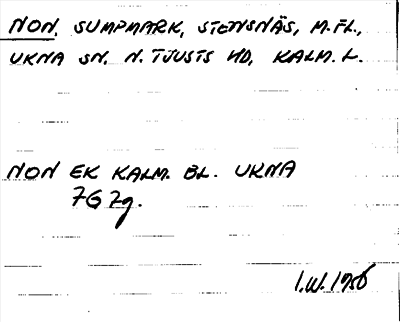 NON, SUMPMARK, STENSNÄS, M.FL.,
UKNA SN. N. TJUSTS HD, KALM. L.
NON EK KALM. BL. UKNA
7G 7g.
I.W. 1956